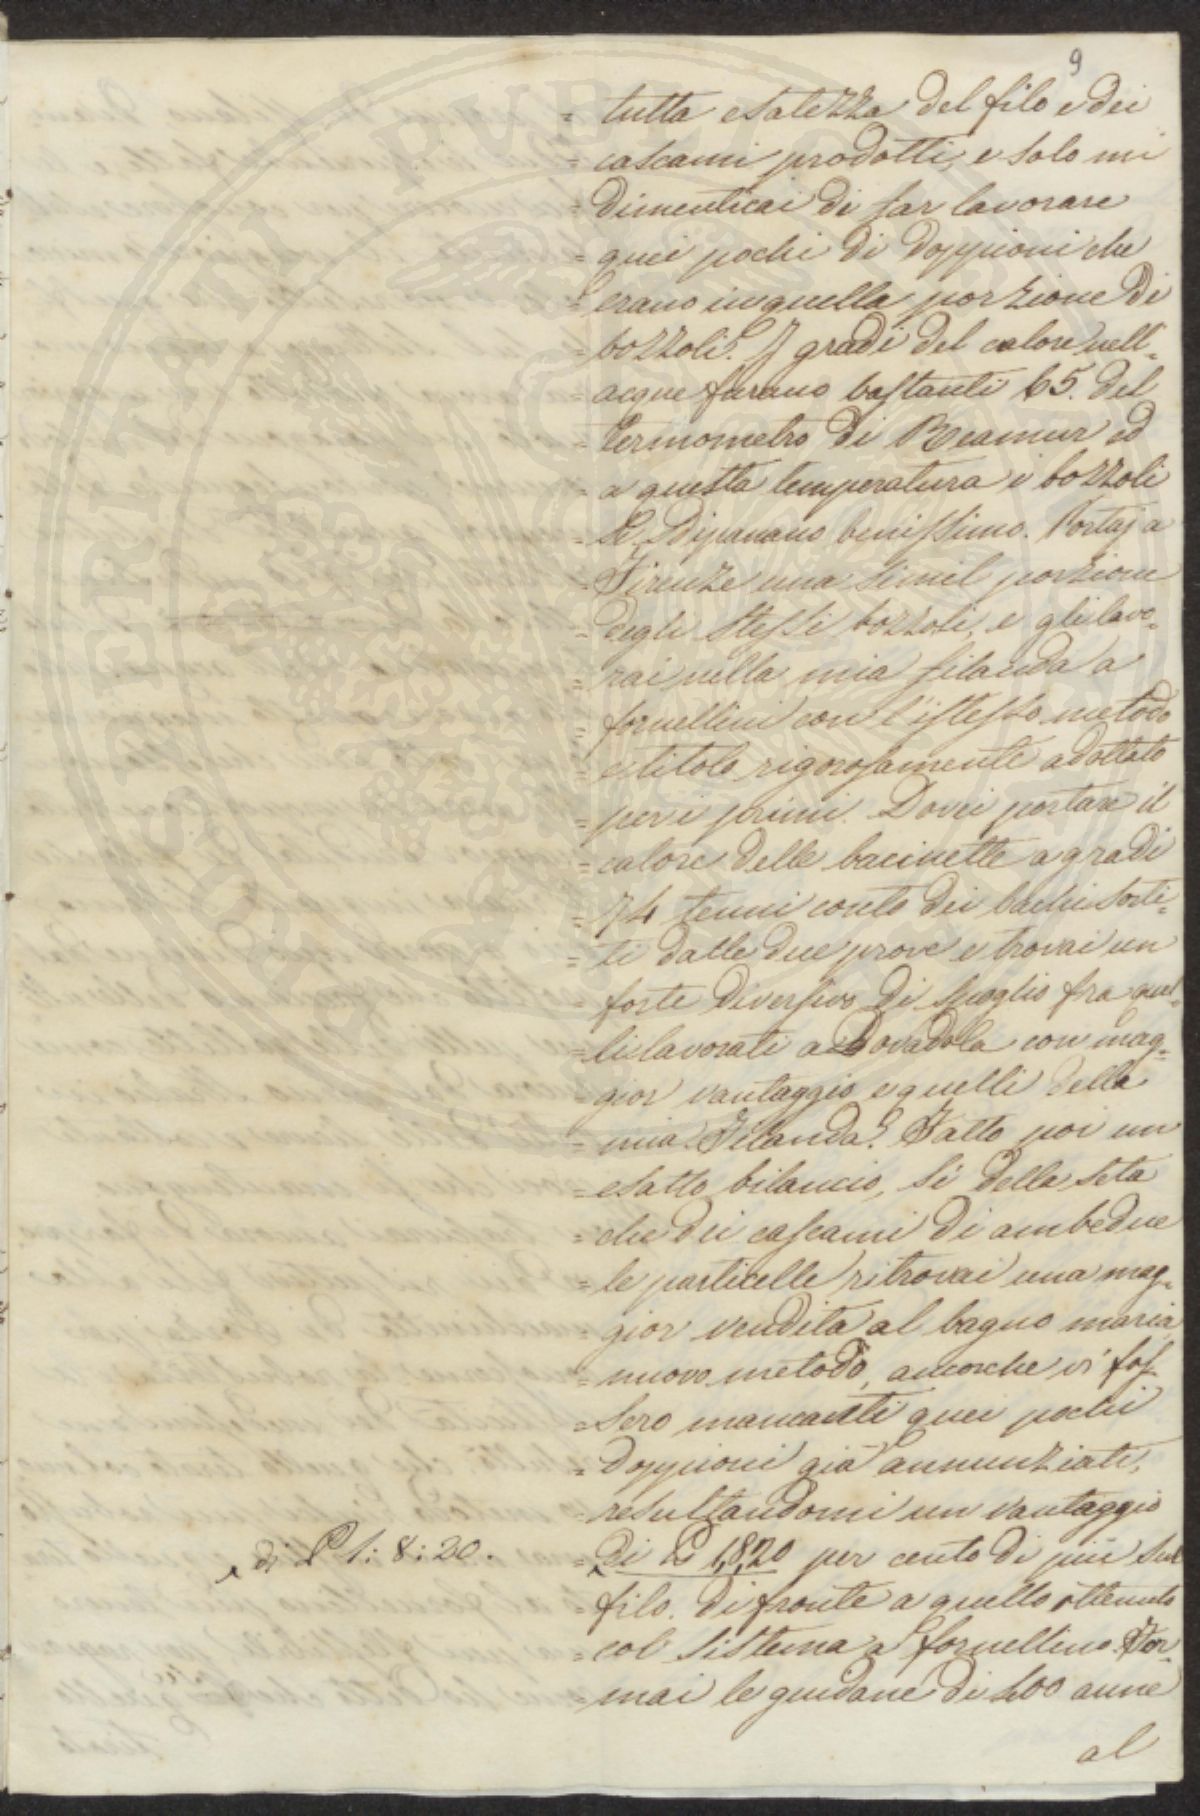 9
= tutta esatezza del filo e dei
= cascami prodotti, e solo mi
= dimenticai di far lavorare
= quei pochi di doppioni che
= erano in quella porzione di
= bozzoli. I gradi del calore nell=
= acque furano bastanti 65. del
= termometro di Reamur ed
= a questa temperatura i bozzoli
= si dipanano benissimo. Portaj a
= Firenze una simil porzione
= degli stessi bozzoli, e gli lavo=
= rai nella mia filanda a
= fornellini con l'istesso metodo
= e titolo rigorosamente adottato
= per i primi. Dovei portare il
= calore delle bacinette a gradi
= 74 tenni conto dei bachi sorti=
= ti dalle due prove e trovai un
= forte diversivo di spoglio fra quel=
= li lavorati a Dovadola con mag=
= gior vantaggio e quelli della
= mia Filanda. Fatto poi un
= esatto bilancio, si della seta
= che dei cascami di ambedue
= le particelle ritrovai una mag=
= gior vendita al bagno maria
= nuovo metodo, ancorche vi fos
= sero mancanti quei pochi
= doppioni già annunziati,
= resultandomi un vantaggio
di £ 1: 8: 20.
= di £ 1,8,20 per cento di più sul
= filo. di fronte a quello ottenuto
= col sistema a fornellino. For=
= mai le guidane di 400 anne
al